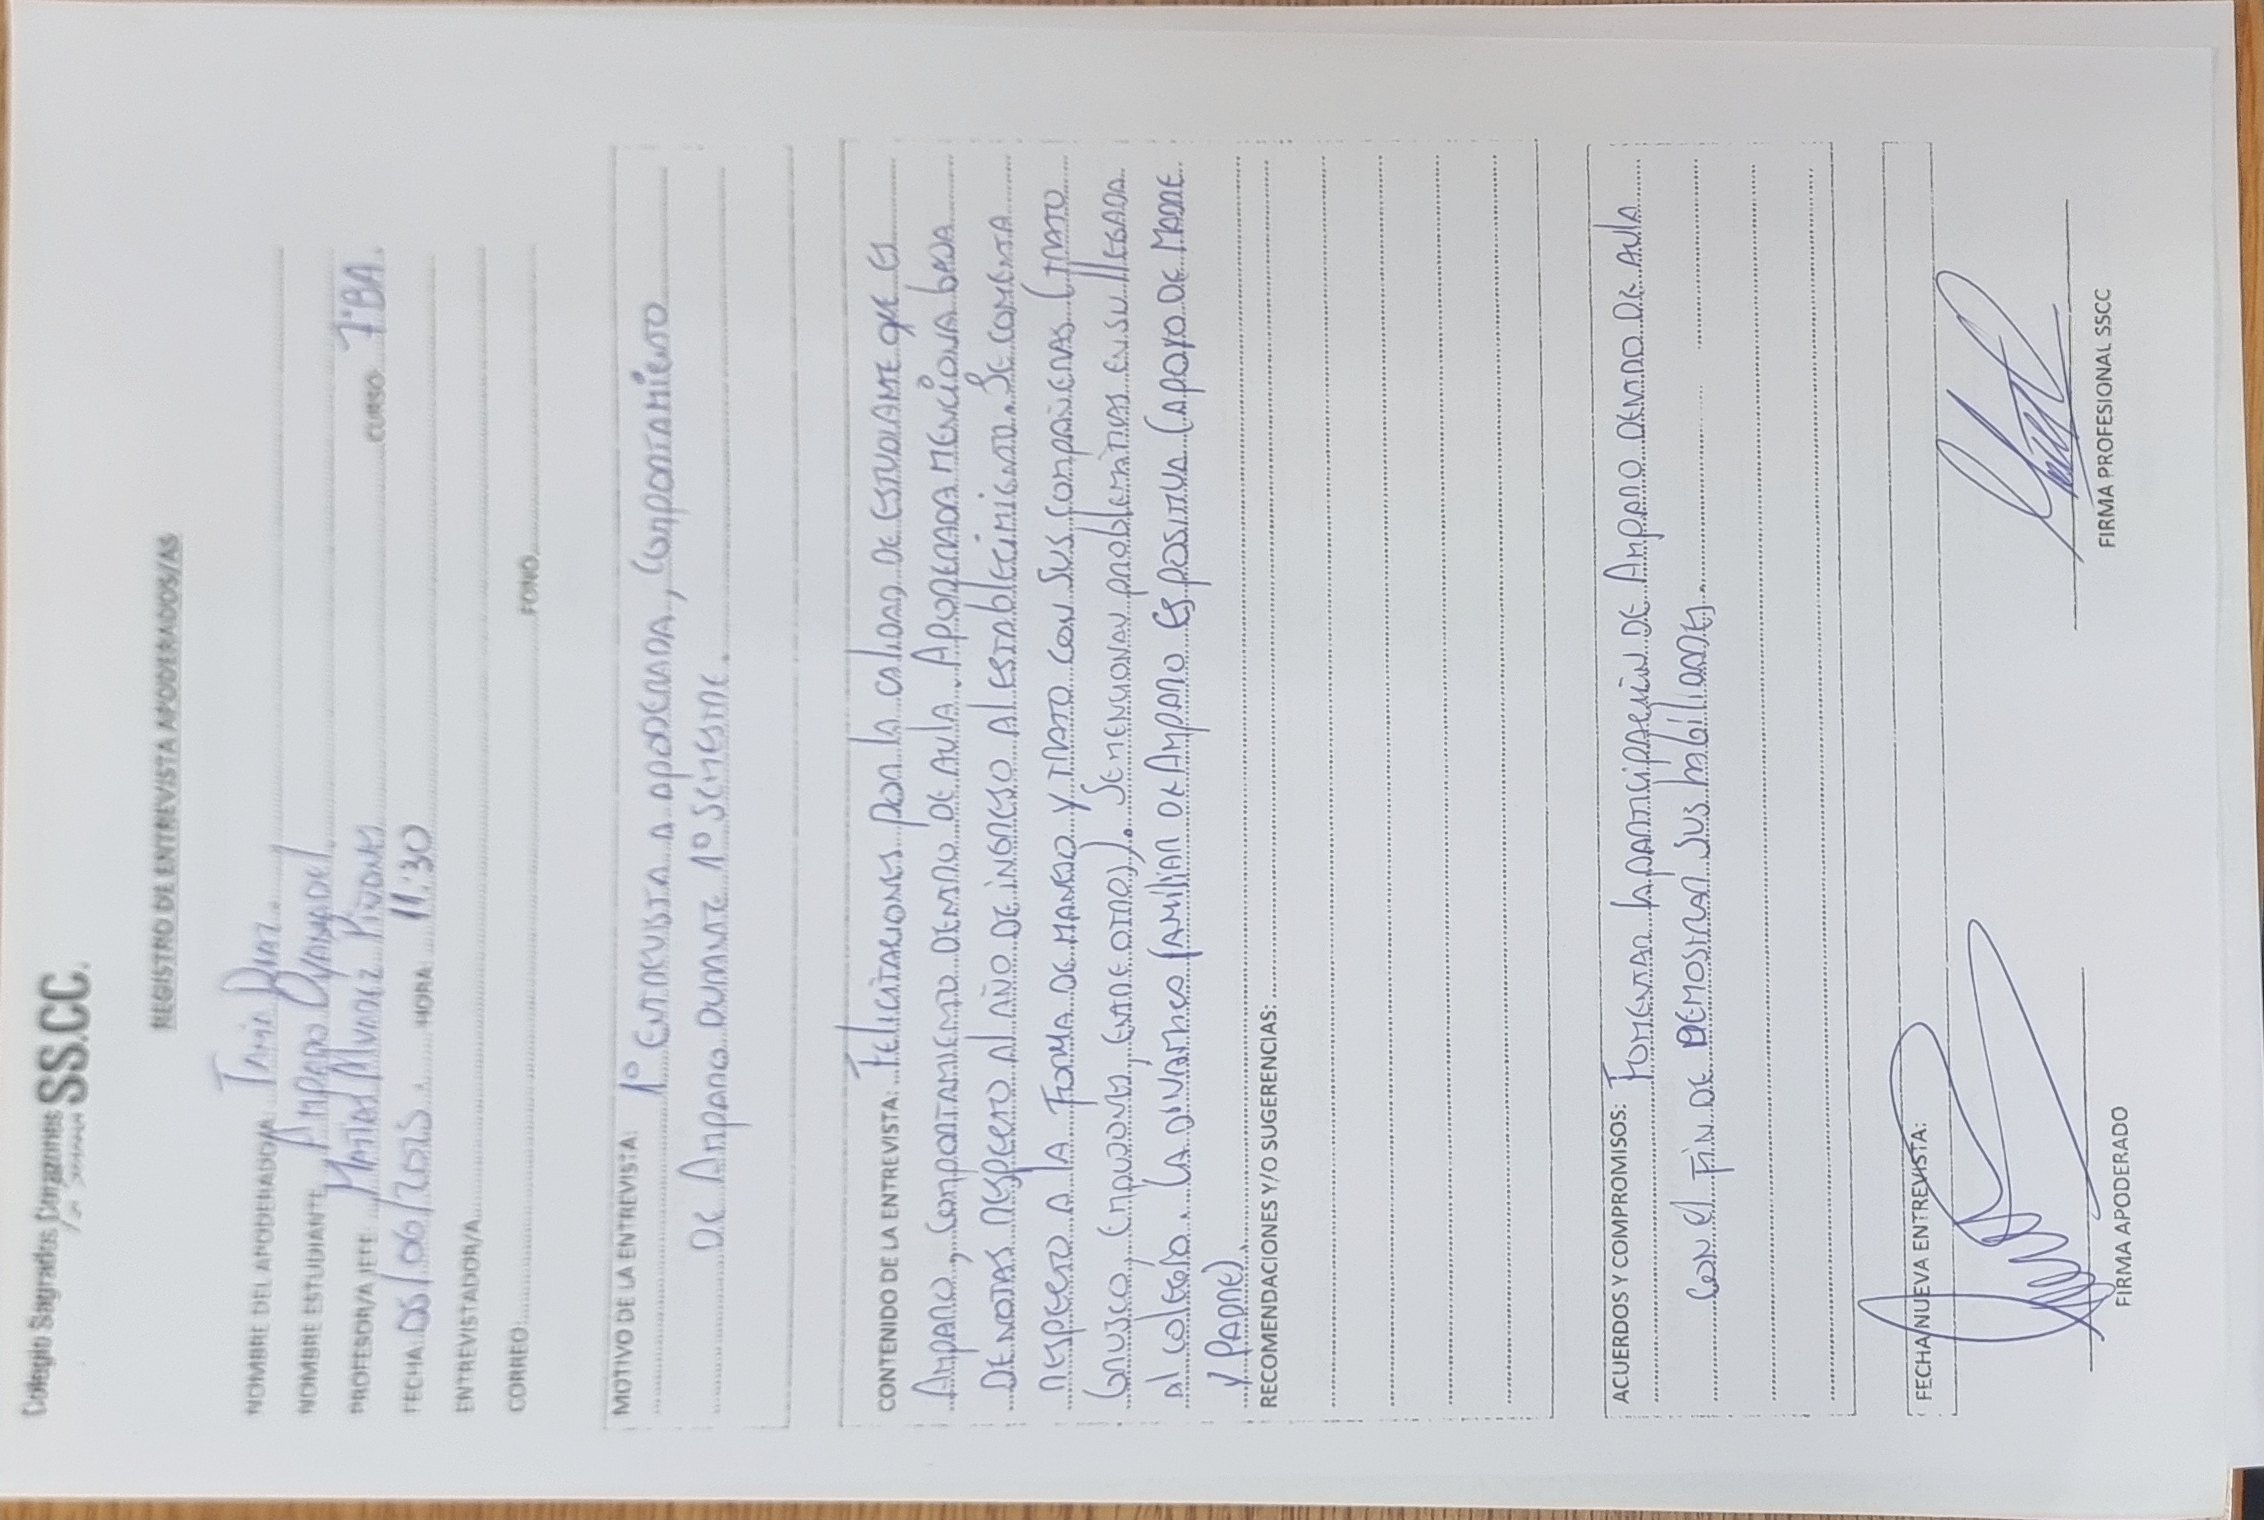 Colegio Sagrados Corazones
SS.CC.
REGISTRO DE ENTREVISTA APODERADOS/AS
NOMBRE DEL APODERADO/A Tania Diaz.
NOMBRE ESTUDIANTE Amparo
PROFESOR/A JEFE: Matias Muñoz CURSO 7°BA.
FECHA 05/06/2025. HORA 11:30
ENTREVISTADOR/A
CORREO FONO
MOTIVO DE LA ENTREVISTA: 1° Entrevista a apoderada, comportamiento
de Amparo durante 1° semestre.
CONTENIDO DE LA ENTREVISTA: Felicitaciones por la calidad de estudiante que es
Amparo, comportamiento dentro de aula. Apoderada menciona baja
de notas respecto al año de ingreso al establecimiento. Se comenta
respecto a la forma de manejo y trato con sus compañeras (trato
brusco, empujones, entre otro). Se mencionan problematicas en su llegada
al colegio. La dinamica familiar de Amparo es positiva (apoyo de madre
y padre).
RECOMENDACIONES Y/O SUGERENCIAS:
ACUERDOS Y COMPROMISOS: Fomentar la participación de Amparo dentro de aula
con el fin de demostrar sus habilidades.
FECHA NUEVA ENTREVISTA:
FIRMA APODERADO FIRMA PROFESIONAL SSCC